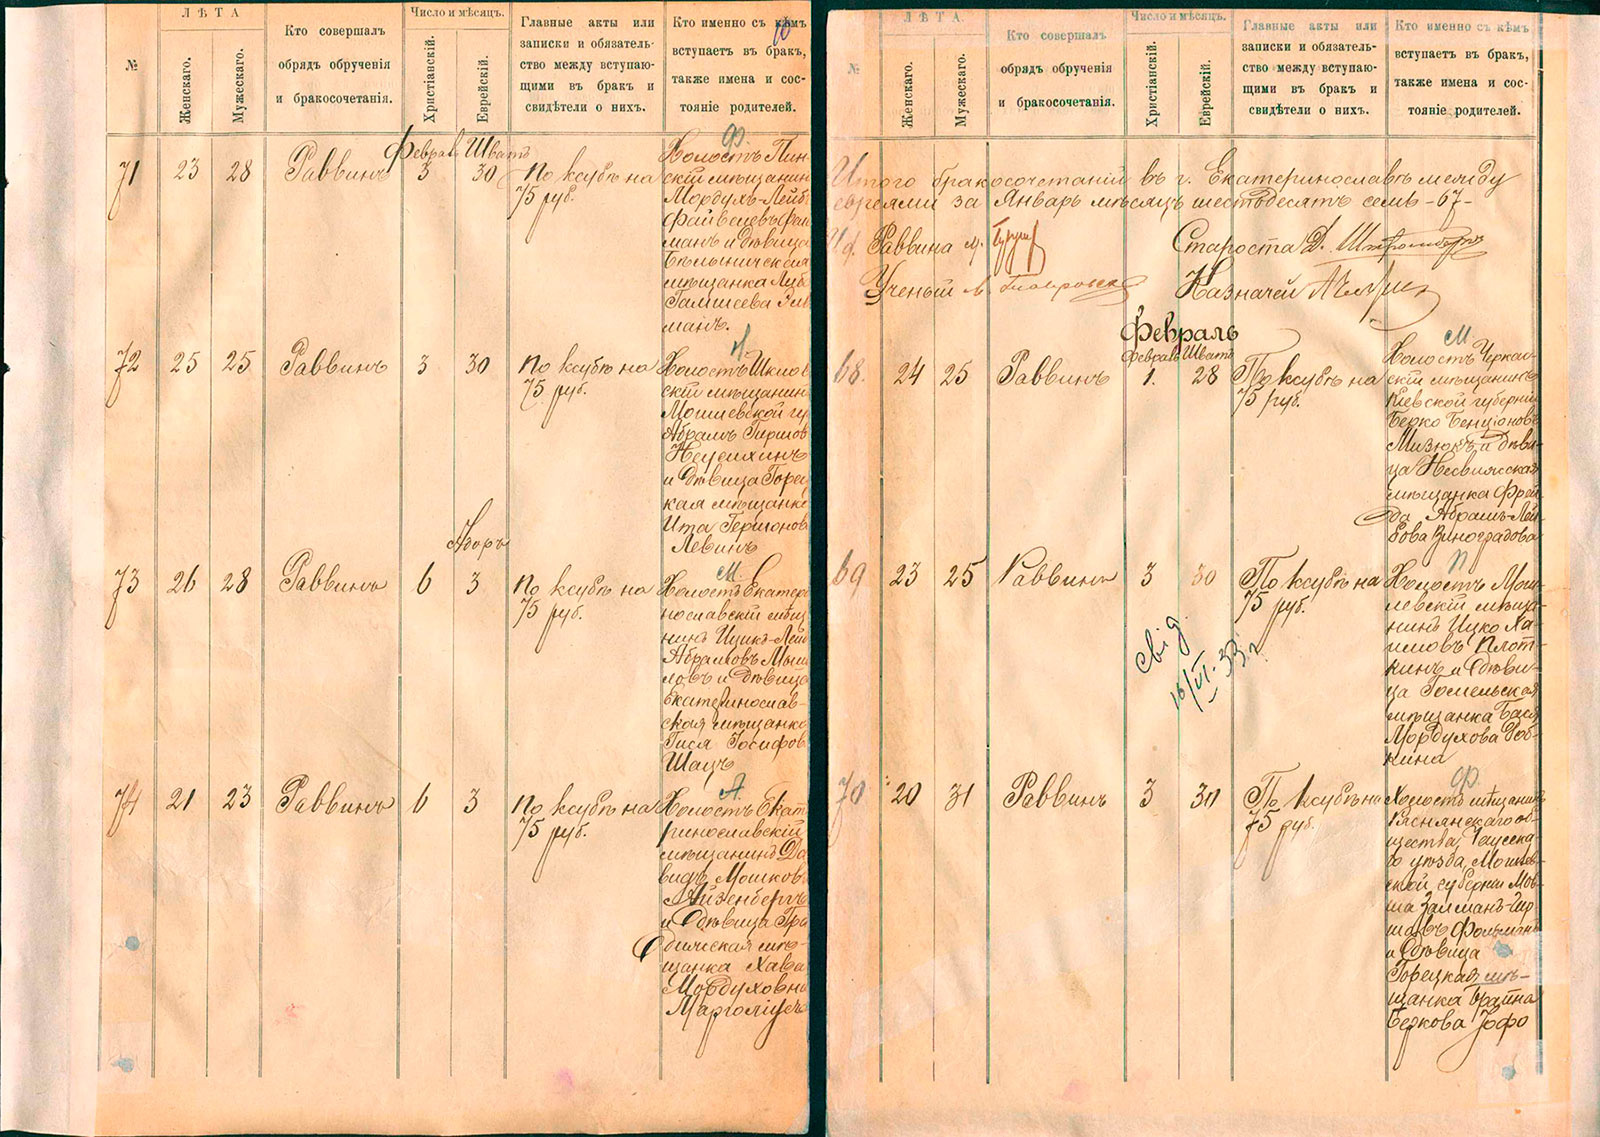 10
№
ЛѢТА
Женскаго.
Мужескаго.
Кто совершалъ
обрядъ обрученія
и бракосочетанія.
Число и мѣсяцъ.
Христіанскій.
Еврейскій.
Главные акты или
записки и обязатель-
ство между вступаю-
щими въ бракъ и
свидѣтели о нихъ.
Кто именно съ кѣмъ
вступаетъ въ бракъ,
также имена и сос-
тояніе родителей.
Феврал Шватъ
71 23 28 Раввинъ 3 30
по ксубѣ на
75 руб.
Ф.
Холостъ Пин-
скій мѣщанин
Мордухъ-Лейб
Файвелевъ
манъ и дѣвица
мѣщанка Либ
манъ.
72 25 25 Раввинъ 3 30
по ксубѣ на
75 руб.
Н
Холостъ Шклов
скій мѣщанин
Могилевской гу
Абрамъ Гиршов
и дѣвица Горец
кая мѣщанка
Ита Гершонова
Левинъ
Адаръ
73 26 28 Раввинъ 6 3
по ксубѣ на
75 руб.
М.
Холостъ Екатери
нославскій мѣщ
нинъ Ицко-Лейб
Абрамовъ Мыш
ловъ и дѣвица
Екатеринослав-
ская мѣщанка
Гися Іосифов
Шацъ
74 21 23 Раввинъ 6 3
по ксубѣ на
75 руб.
А.
Холостъ Екат
ринославскій
мѣщанинъ Да
видъ Мошков
Айзенбергъ
и дѣвица Гро
дненская мѣ-
щанка Хава
Мордуховна
Марголіусъ
№
ЛѢТА.
Женскаго.
Мужескаго.
Кто совершалъ
обрядъ обрученія
и бракосочетанія.
Число и мѣсяцъ.
Христіанскій.
Еврейскій.
Главные акты или
записки и обязатель-
ство между вступаю-
щими въ бракъ и
свидѣтели о нихъ.
Кто именно съ кѣмъ
вступаетъ въ бракъ,
также имена и сос-
тояніе родителей.
Итого бракосочетаній въ г. Екатеринославѣ между
евреями за Январь мѣсяцъ шестьдесятъ семь -67-
И.д. Раввина
Староста Д.
Ученый
Казначей
Февраль
Феврал Шватъ
68. 24 25 Раввинъ 1. 28
По ксубѣ на
75 руб.
М
Холостъ Черкас-
скій мѣщанинъ
Кіевской губерніи
Берко Бенціоновъ
Мизюкъ и дѣви-
ца Несвижская
мѣщанка Фрей-
да Абрамъ-Лей-
бова Виноградова
69 23 25 Раввинъ 3 30
По ксубѣ на
75 руб.
П
Холостъ Моги-
левскій мѣща-
нинъ Ицко Ха-
имовъ Плот-
кинъ и дѣви-
ца Гомельская
мѣщанка Бася
Мордухова Роб-
кина
свід.
16/VI.33 г.
70 20 31 Раввинъ 3 30
По ксубѣ на
75 руб.
Ф.
Холостъ мѣщанинъ
Ряснянскаго об-
щества, Чаусска-
го уѣзда, Могилев-
ской губерніи Мов-
ша Залманъ-Гир
шовъ Фельманъ
и дѣвица
Горецкая мѣ-
щанка Брайна
Беркова Іофо